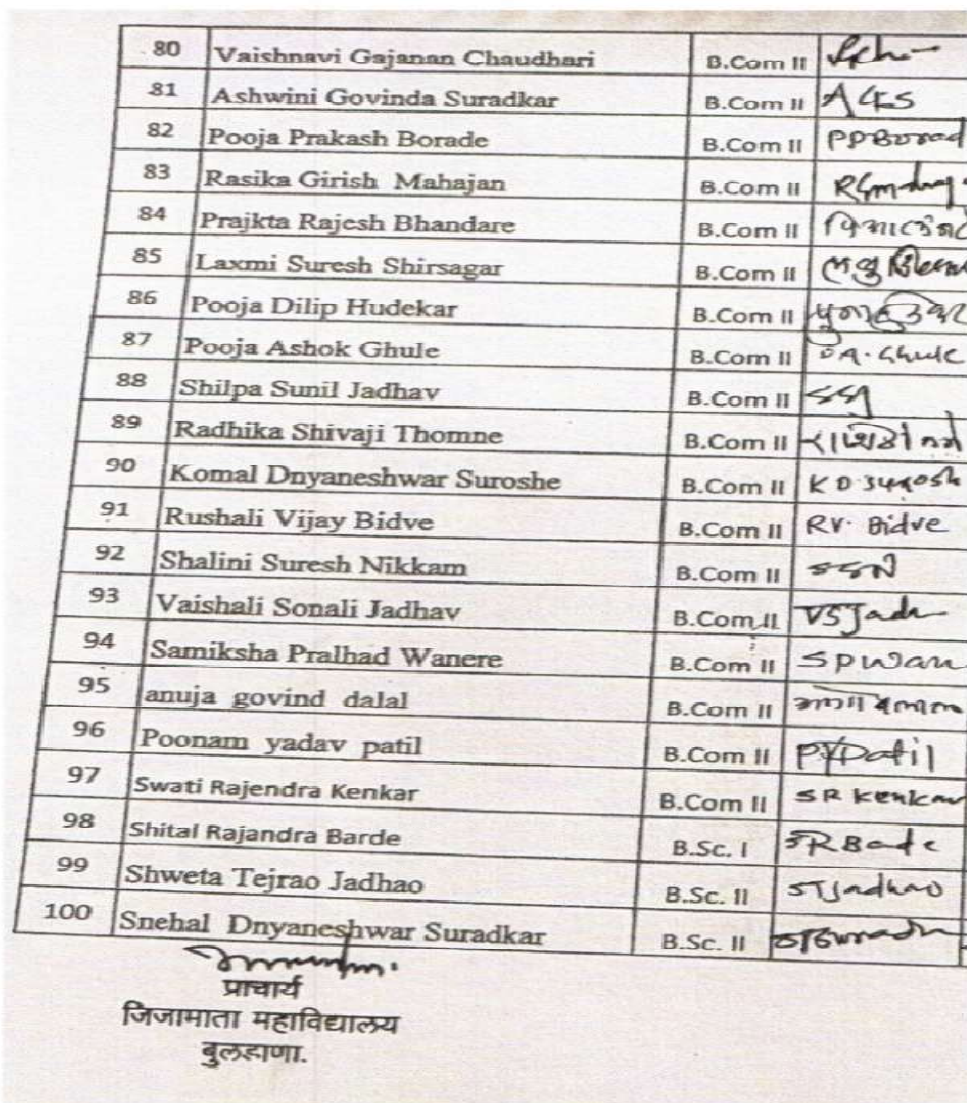 80 Vaishnavi Gajanan Chaudhari B.Com II
81 Ashwini Govinda Suradkar B.Com II
82 Pooja Prakash Borade B.Com II
83 Rasika Girish Mahajan B.Com II
84 Prajkta Rajesh Bhandare B.Com II
85 Laxmi Suresh Shirsagar B.Com II
86 Pooja Dilip Hudekar B.Com II
87 Pooja Ashok Ghule B.Com II
88 Shilpa Sunil Jadhav B.Com II
89 Radhika Shivaji Thomne B.Com II
90 Komal Dnyaneshwar Suroshe B.Com II
91 Rushali Vijay Bidve B.Com II RV. Bidve
92 Shalini Suresh Nikkam B.Com II
93 Vaishali Sonali Jadhav B.Com II
94 Samiksha Pralhad Wanere B.Com II
95 anuja govind dalal B.Com II
96 Poonam yadav patil B.Com II PYPatil
97 Swati Rajendra Kenkar B.Com II SR Kenkar
98 Shital Rajandra Barde B.Sc. I
99 Shweta Tejrao Jadhao B.Sc. II STJadhao
100 Snehal Dnyaneshwar Suradkar B.Sc. II
प्राचार्य
जिजामाता महाविद्यालय
बुलडाणा.